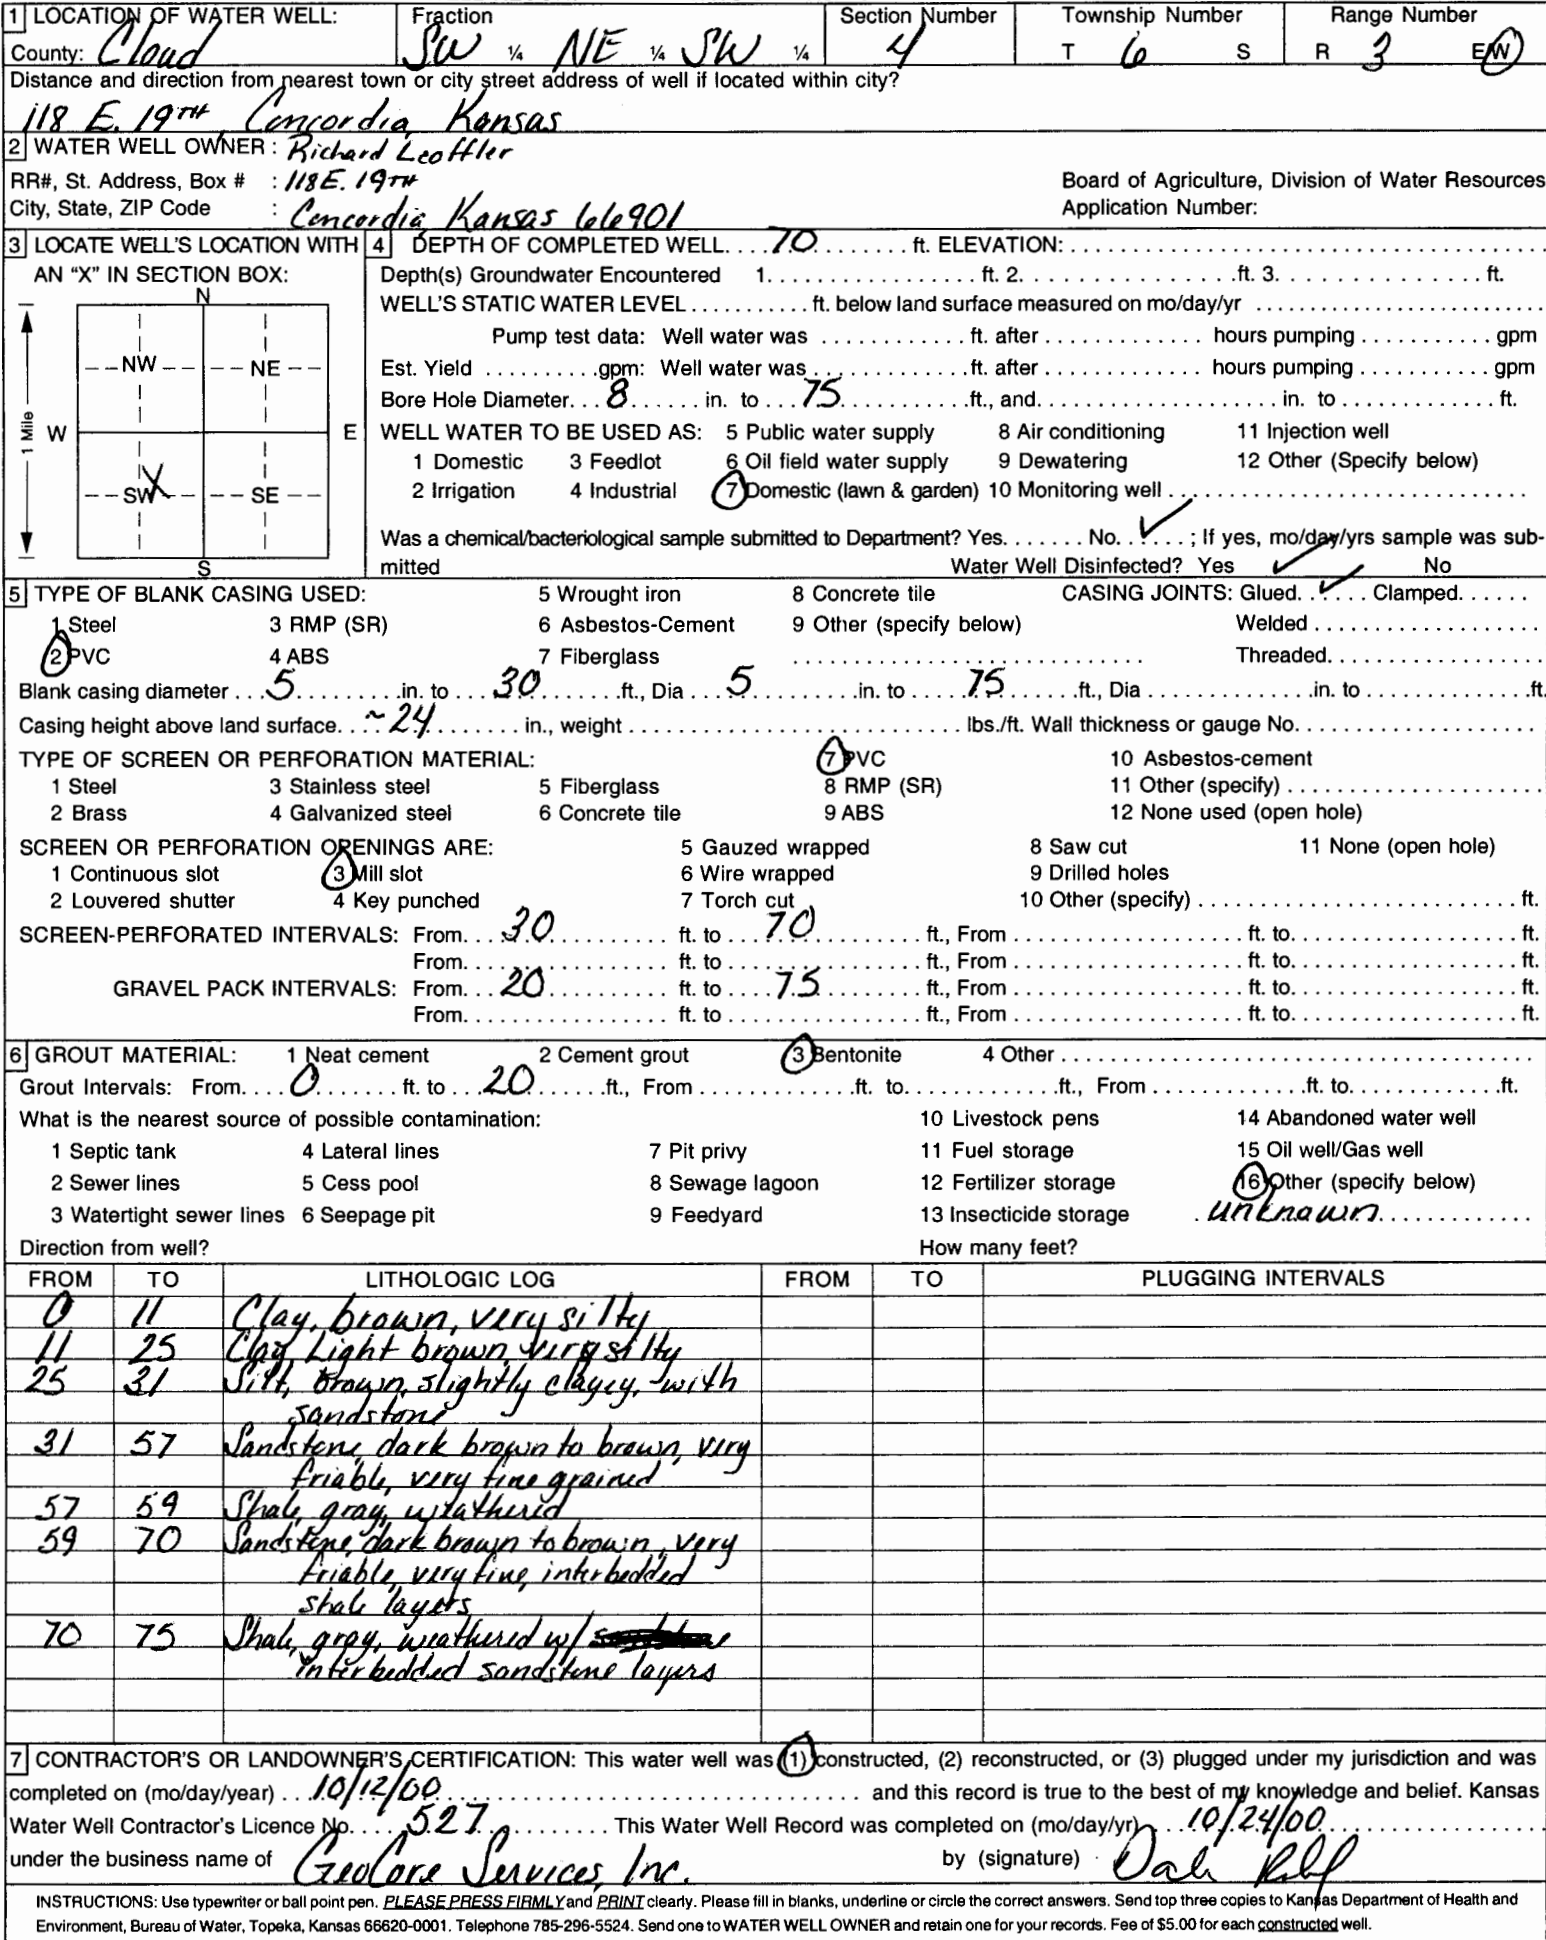 1 LOCATION OF WATER WELL: Fraction Section Number Township Number Range Number
County: Cloud SW ¼ NE ¼ SW ¼ 4 T 6 S R 3 E/W
Distance and direction from nearest town or city street address of well if located within city?
118 E. 19TH, Concordia, Kansas
2 WATER WELL OWNER: Richard Leoffler
RR#, St. Address, Box # : 118 E. 19TH Board of Agriculture, Division of Water Resources
City, State, ZIP Code : Concordia, Kansas 66901 Application Number:
3 LOCATE WELL'S LOCATION WITH 4 DEPTH OF COMPLETED WELL....70........ft. ELEVATION:
AN "X" IN SECTION BOX: Depth(s) Groundwater Encountered 1. ft. 2. ft. 3. ft.
N
WELL'S STATIC WATER LEVEL ft. below land surface measured on mo/day/yr
Pump test data: Well water was ft. after hours pumping gpm
NW NE Est. Yield gpm: Well water was ft. after hours pumping gpm
Bore Hole Diameter...8......in. to...75......ft., and in. to ft.
1 Mile W E WELL WATER TO BE USED AS: 5 Public water supply 8 Air conditioning 11 Injection well
1 Domestic 3 Feedlot 6 Oil field water supply 9 Dewatering 12 Other (Specify below)
SW X SE 2 Irrigation 4 Industrial 7 Domestic (lawn & garden) 10 Monitoring well
Was a chemical/bacteriological sample submitted to Department? Yes....... No..✓....; If yes, mo/day/yrs sample was sub-
S mitted Water Well Disinfected? Yes ✓ No
5 TYPE OF BLANK CASING USED: 5 Wrought iron 8 Concrete tile CASING JOINTS: Glued..✓.... Clamped......
1 Steel 3 RMP (SR) 6 Asbestos-Cement 9 Other (specify below) Welded
2 PVC 4 ABS 7 Fiberglass Threaded
Blank casing diameter...5......in. to...30......ft., Dia...5......in. to...75......ft., Dia in. to ft.
Casing height above land surface...~24......in., weight lbs./ft. Wall thickness or gauge No.
TYPE OF SCREEN OR PERFORATION MATERIAL: 7 PVC 10 Asbestos-cement
1 Steel 3 Stainless steel 5 Fiberglass 8 RMP (SR) 11 Other (specify)
2 Brass 4 Galvanized steel 6 Concrete tile 9 ABS 12 None used (open hole)
SCREEN OR PERFORATION OPENINGS ARE: 5 Gauzed wrapped 8 Saw cut 11 None (open hole)
1 Continuous slot 3 Mill slot 6 Wire wrapped 9 Drilled holes
2 Louvered shutter 4 Key punched 7 Torch cut 10 Other (specify) ft.
SCREEN-PERFORATED INTERVALS: From...30......ft. to...70......ft., From ft. to ft.
From ft. to ft., From ft. to ft.
GRAVEL PACK INTERVALS: From...20......ft. to...75......ft., From ft. to ft.
From ft. to ft., From ft. to ft.
6 GROUT MATERIAL: 1 Neat cement 2 Cement grout 3 Bentonite 4 Other
Grout Intervals: From...0......ft. to...20......ft., From ft. to ft., From ft. to ft.
What is the nearest source of possible contamination: 10 Livestock pens 14 Abandoned water well
1 Septic tank 4 Lateral lines 7 Pit privy 11 Fuel storage 15 Oil well/Gas well
2 Sewer lines 5 Cess pool 8 Sewage lagoon 12 Fertilizer storage 16 Other (specify below)
3 Watertight sewer lines 6 Seepage pit 9 Feedyard 13 Insecticide storage unknawn
Direction from well? How many feet?
FROM TO LITHOLOGIC LOG FROM TO PLUGGING INTERVALS
0 11 Clay, brown, very silty
11 25 Clay, Light brown, very silty
25 31 Silt, brown, slightly clayey, with
sandstone
31 57 Sandstone, dark brown to brown, very
friable, very fine grained
57 59 Shale, gray, weathered
59 70 Sandstone, dark brown to brown, very
friable, very fine, interbedded
shale layers
70 75 Shale, gray, weathered w/
interbedded sandstone layers
7 CONTRACTOR'S OR LANDOWNER'S CERTIFICATION: This water well was (1) constructed, (2) reconstructed, or (3) plugged under my jurisdiction and was
completed on (mo/day/year) ...10/12/00... and this record is true to the best of my knowledge and belief. Kansas
Water Well Contractor's Licence No. ...527... This Water Well Record was completed on (mo/day/yr) ...10/24/00...
under the business name of GeoCore Services, Inc. by (signature) Dale
INSTRUCTIONS: Use typewriter or ball point pen. PLEASE PRESS FIRMLY and PRINT clearly. Please fill in blanks, underline or circle the correct answers. Send top three copies to Kansas Department of Health and
Environment, Bureau of Water, Topeka, Kansas 66620-0001. Telephone 785-296-5524. Send one to WATER WELL OWNER and retain one for your records. Fee of $5.00 for each constructed well.